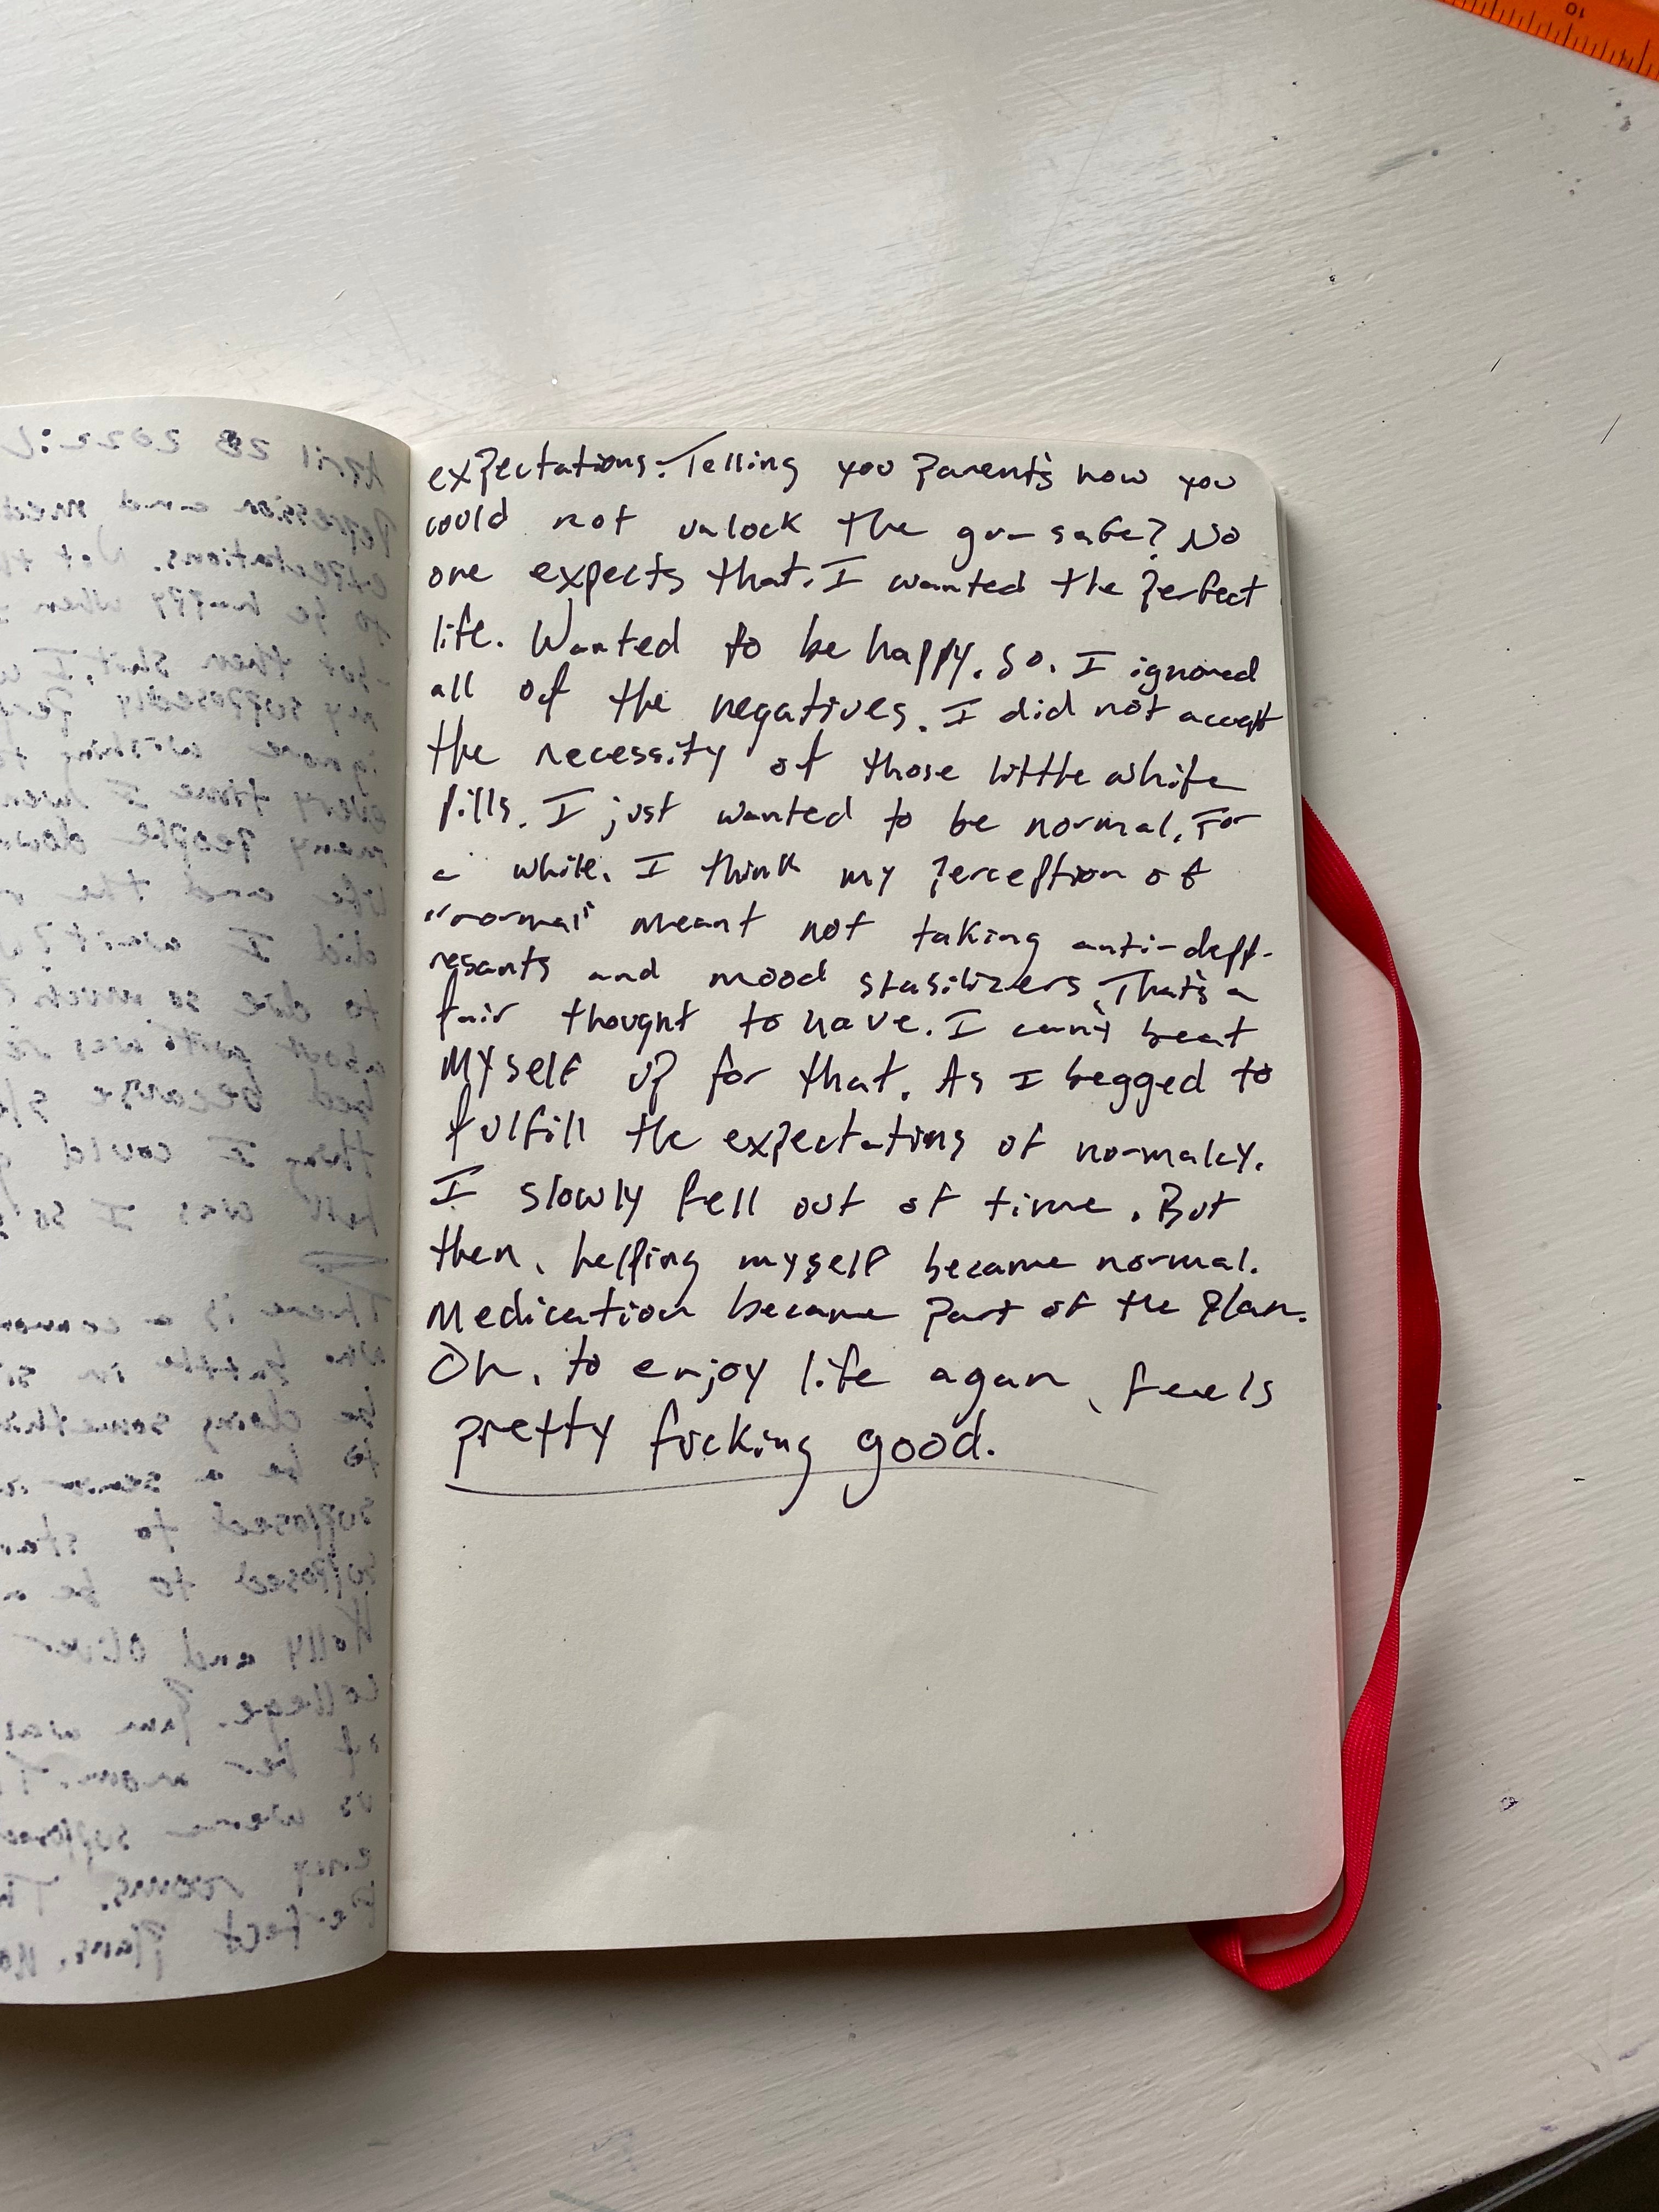 April 28 2022:
Depression and med
expectations. Not th
to be happy when
but then shit. I w
my supposedly perf
ignore wishing to
every time I
many people down
life and the
did I want?
to die so much?
about was
bed because
thing I could
hell was I so
There is a common
who battle in si
be doing somethin
to be a senior
supposed to star
supposed to be a
Holly and Oliver
college. Pam was
of her mom. T
us were suppose
emy rooms. Th
Perfect Plans. No
expectations. Telling you parent's how you
could not unlock the gun safe? No
one expects that. I wanted the perfect
life. Wanted to be happy. So. I ignored
all of the negatives. I did not accept
the necessity of those little white
pills. I just wanted to be normal. For
a while. I think my perception of
"normal" meant not taking anti-depp-
resants and mood stabilizers. That's a
fair thought to have. I can't beat
myself up for that. As I begged to
fulfill the expectations of normalcy.
I slowly fell out of time. But
then, helping myself became normal.
Medication became part of the plan.
Oh, to enjoy life again, feels
pretty fucking good.
10